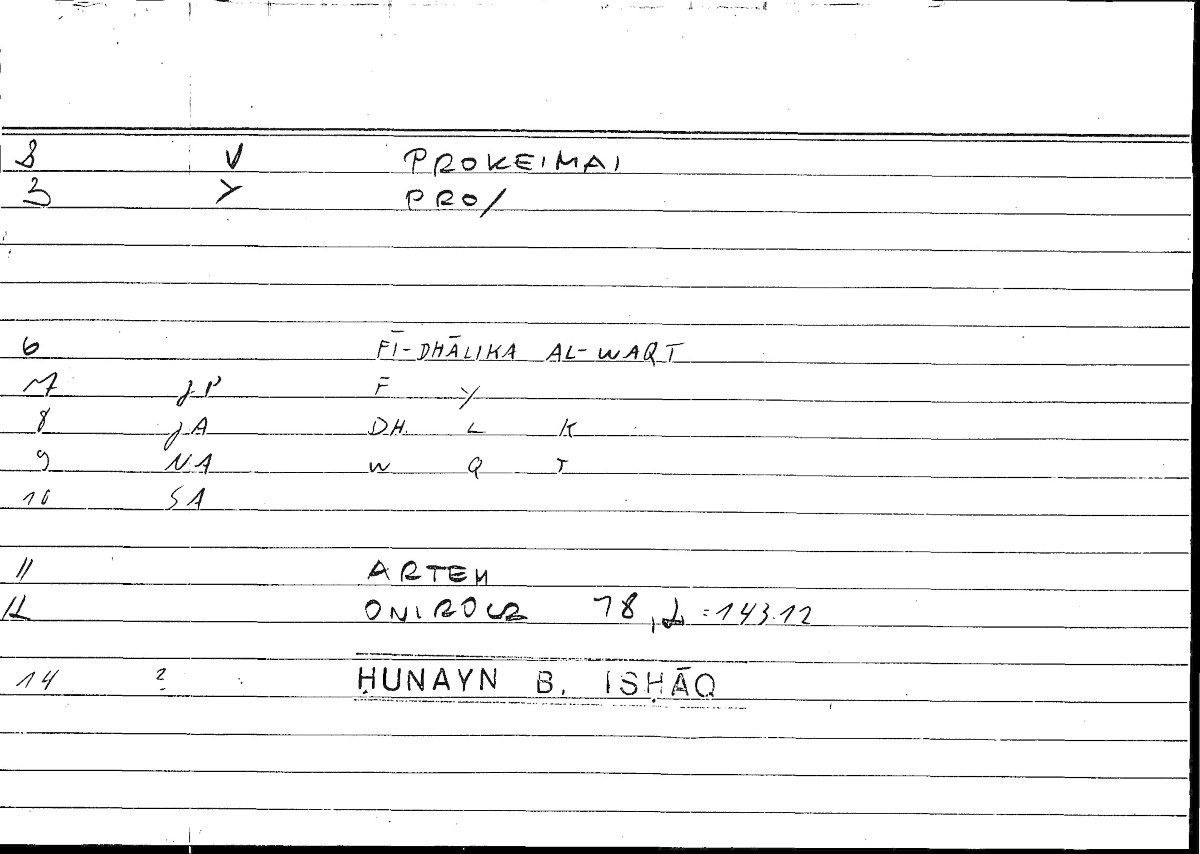 8 V PROKEIMAI
3 > PRO/
6 FĪ-DHĀLIKA AL-WAQT
7 JP F Y
8 JA DH. L K
9 NA W Q T
10 SA
11 ARTEM
12 ONIROCR 78, = 143.12
14 ? ḤUNAYN B. ISḤĀQ